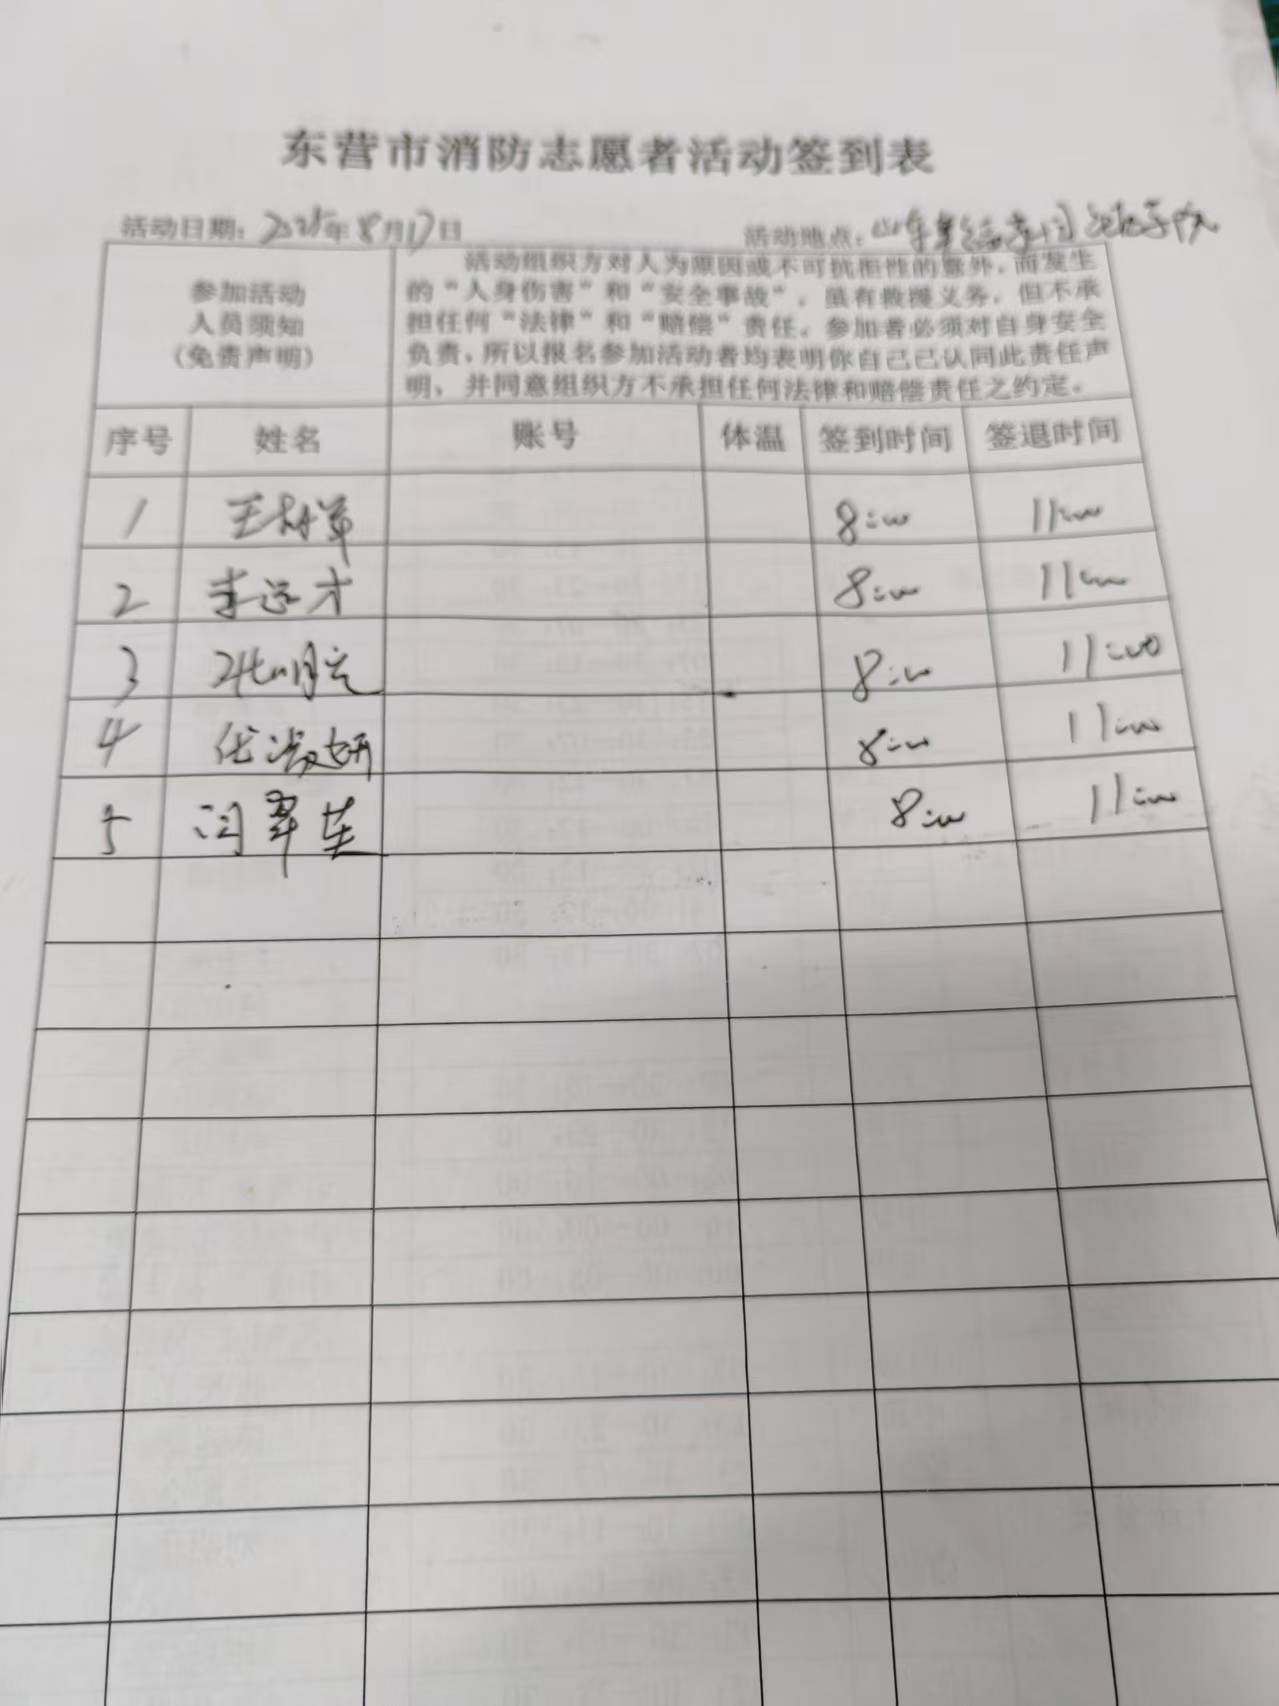 东营市消防志愿者活动签到表
活动日期：2025年8月17日 活动地点：山东
参加活动
人员须知
（免责声明）
活动组织方对人为原因或不可抗拒性的意外，而发生
的“人身伤害”和“安全事故”，虽有救援义务，但不承
担任何“法律”和“赔偿”责任。参加者必须对自身安全
负责。所以报名参加活动者均表明你自己已认同此责任声
明，并同意组织方不承担任何法律和赔偿责任之约定。
序号 姓名 账号 体温 签到时间 签退时间
1 王 8:00 11:00
2 李远才 8:00 11:00
3 8:00 11:00
4 任淑妍 8:00 11:00
5 闫翠英 8:00 11:00